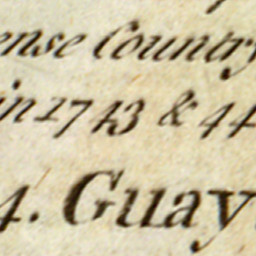 ense Country
in 1743 & 44
4. Guay